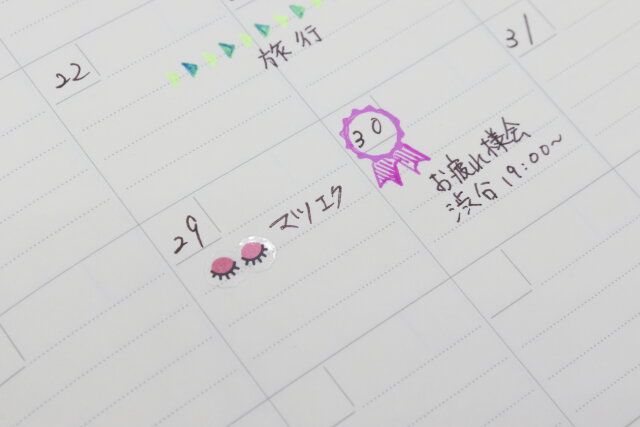 22
旅行
31
30
お疲れ様会
渋谷 19:00~
29
マツエク